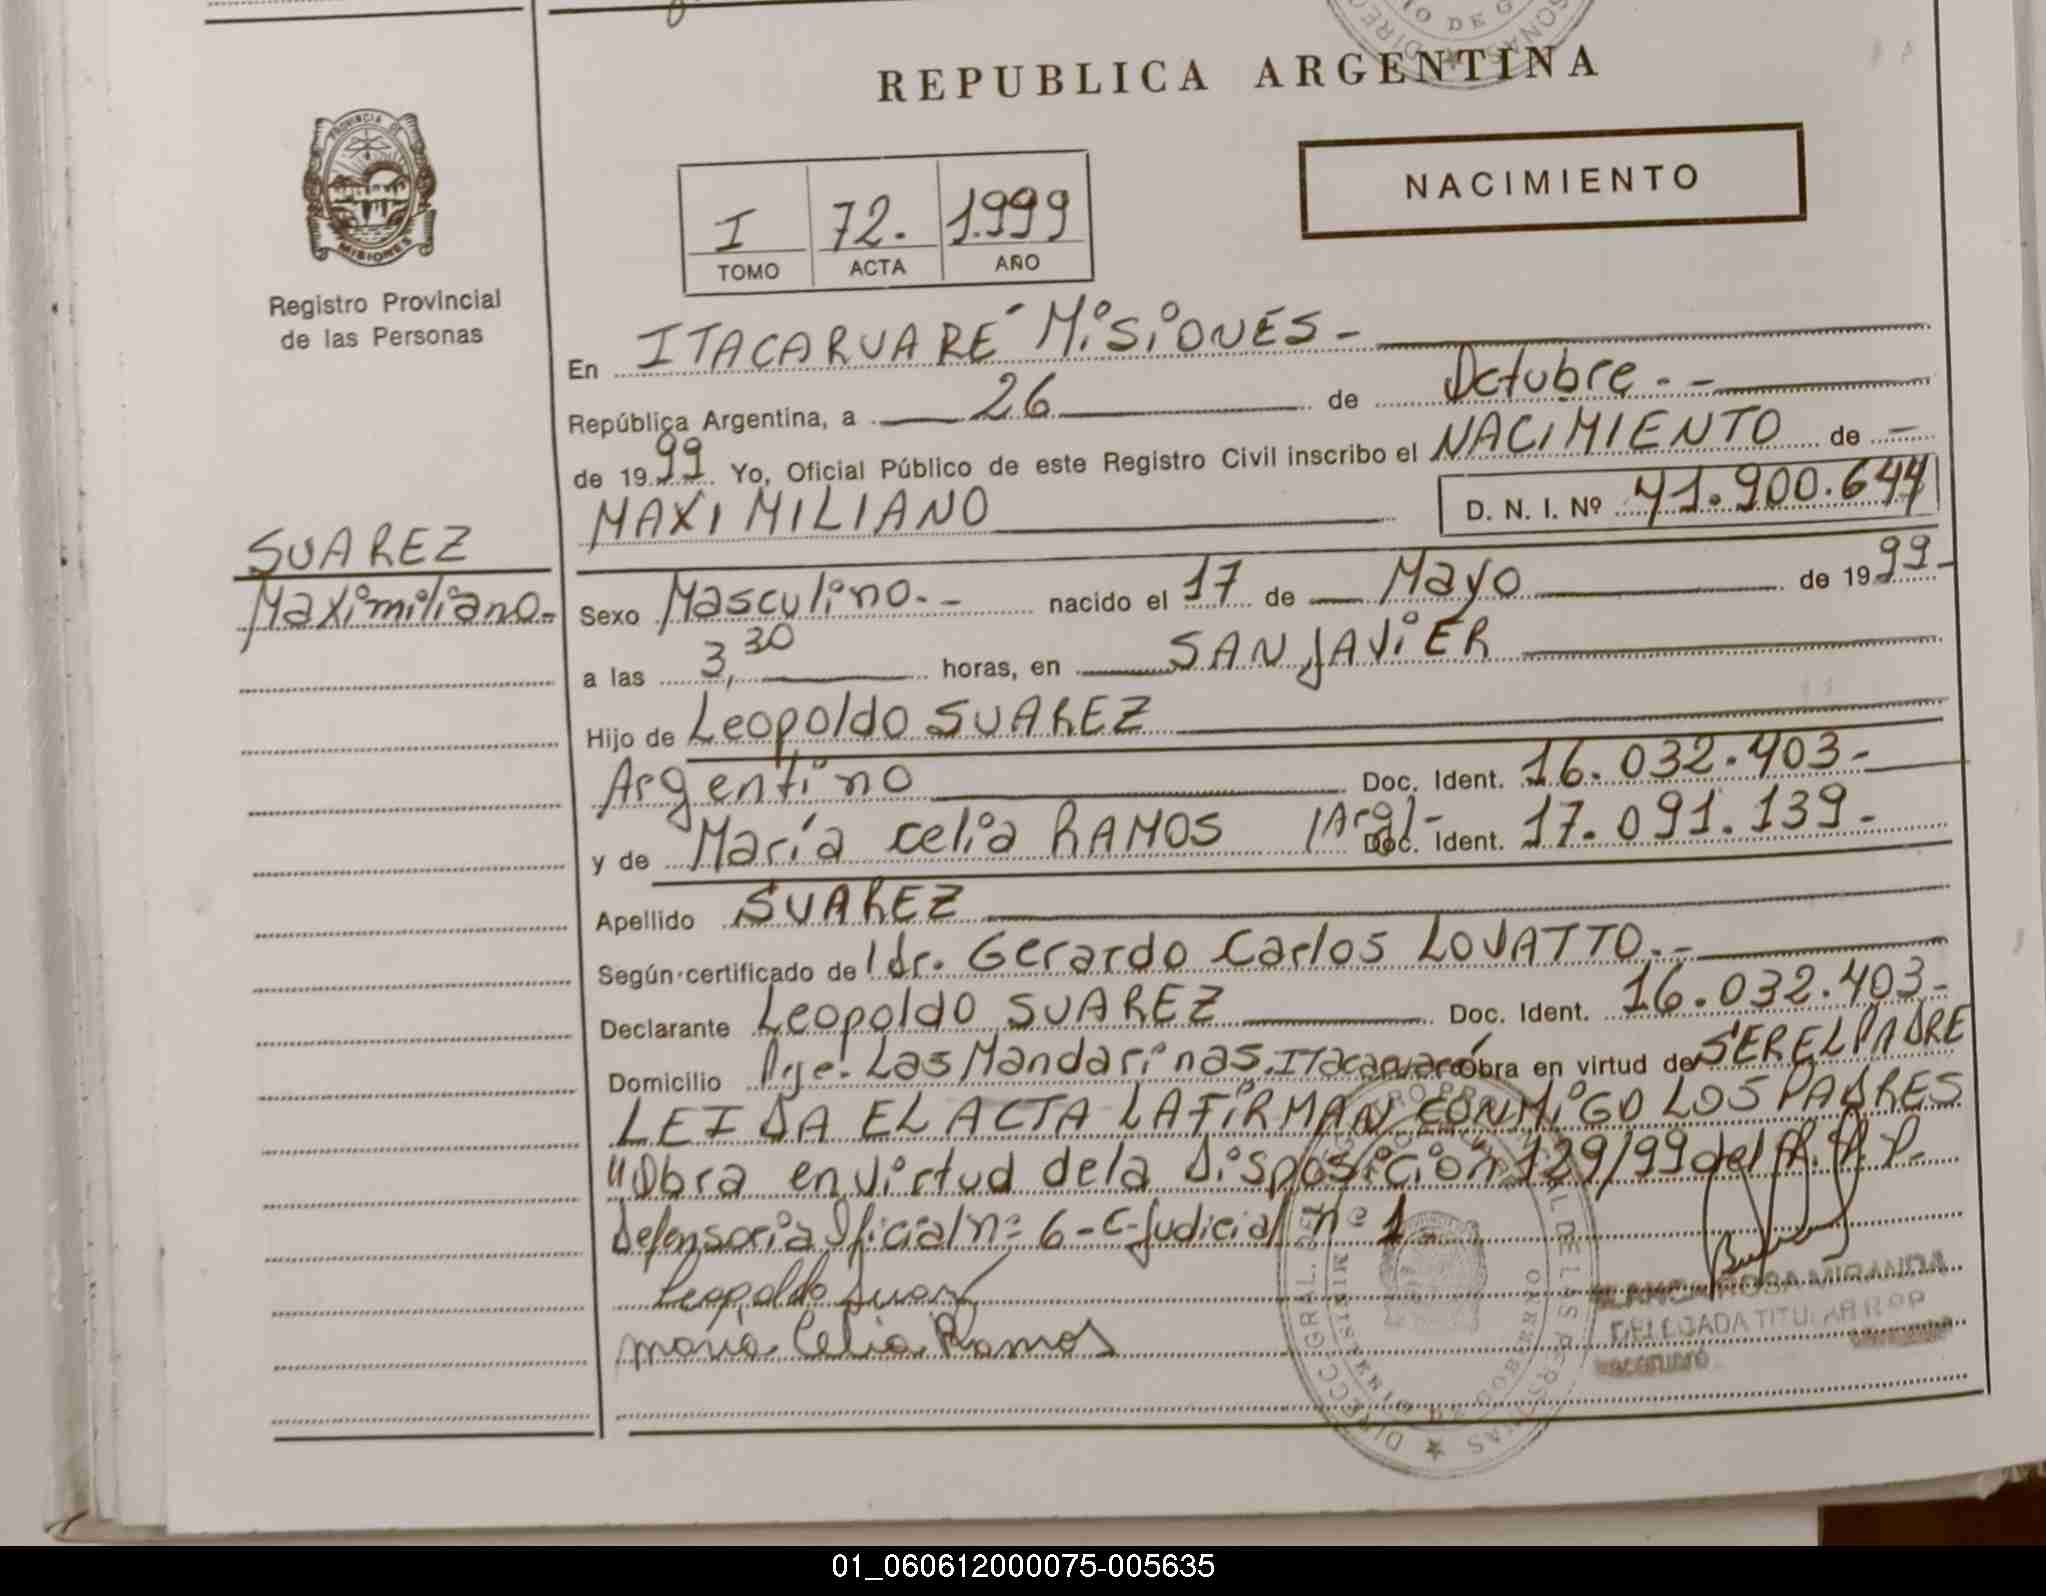 REPUBLICA ARGENTINA
NACIMIENTO
PROVINCIA DE
MISIONES
Registro Provincial
de las Personas
I 72. 1.999
TOMO ACTA AÑO
En ITACARUARÉ MiSiONES -
República Argentina, a 26 de Octubre. -
de 1999 Yo, Oficial Público de este Registro Civil inscribo el NACIMIENTO de -
MAXIMILIANO D. N. I. Nº 41.900.644
SUAREZ
Maximiliano.-
Sexo Masculino. - nacido el 17 de Mayo de 1999-
a las 3,30 horas, en SAN JAViER
Hijo de Leopoldo SUAREZ
Argentino Doc. Ident. 16.032.403-
y de María Celia RAMOS (Arg)- Doc. Ident. 17.091.139-
Apellido SUAREZ
Según certificado de l dr. Gerardo Carlos LOVATTO. -
Declarante Leopoldo SUAREZ Doc. Ident. 16.032.403-
Domicilio Las Mandarinas. ITacaruaré obra en virtud de SER EL PADRE
LEIDA EL ACTA LA FiRMAN CONMiGO LOS PADRES
"Obra en virtud de la disposición 129/99 del R. P. P.
defensoria Oficial nº 6 - C. Judicial nº 1.
Leopoldo Suarez
Maria Celia Ramos
BLANCA ROSA MIRANDA
DELEGADA TITULAR R O P
01_060612000075-005635